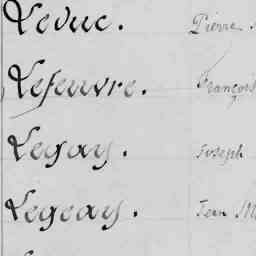 Leduc. Pierre
Lefeuvre. François
Legay. Joseph
Legeay. Jean M